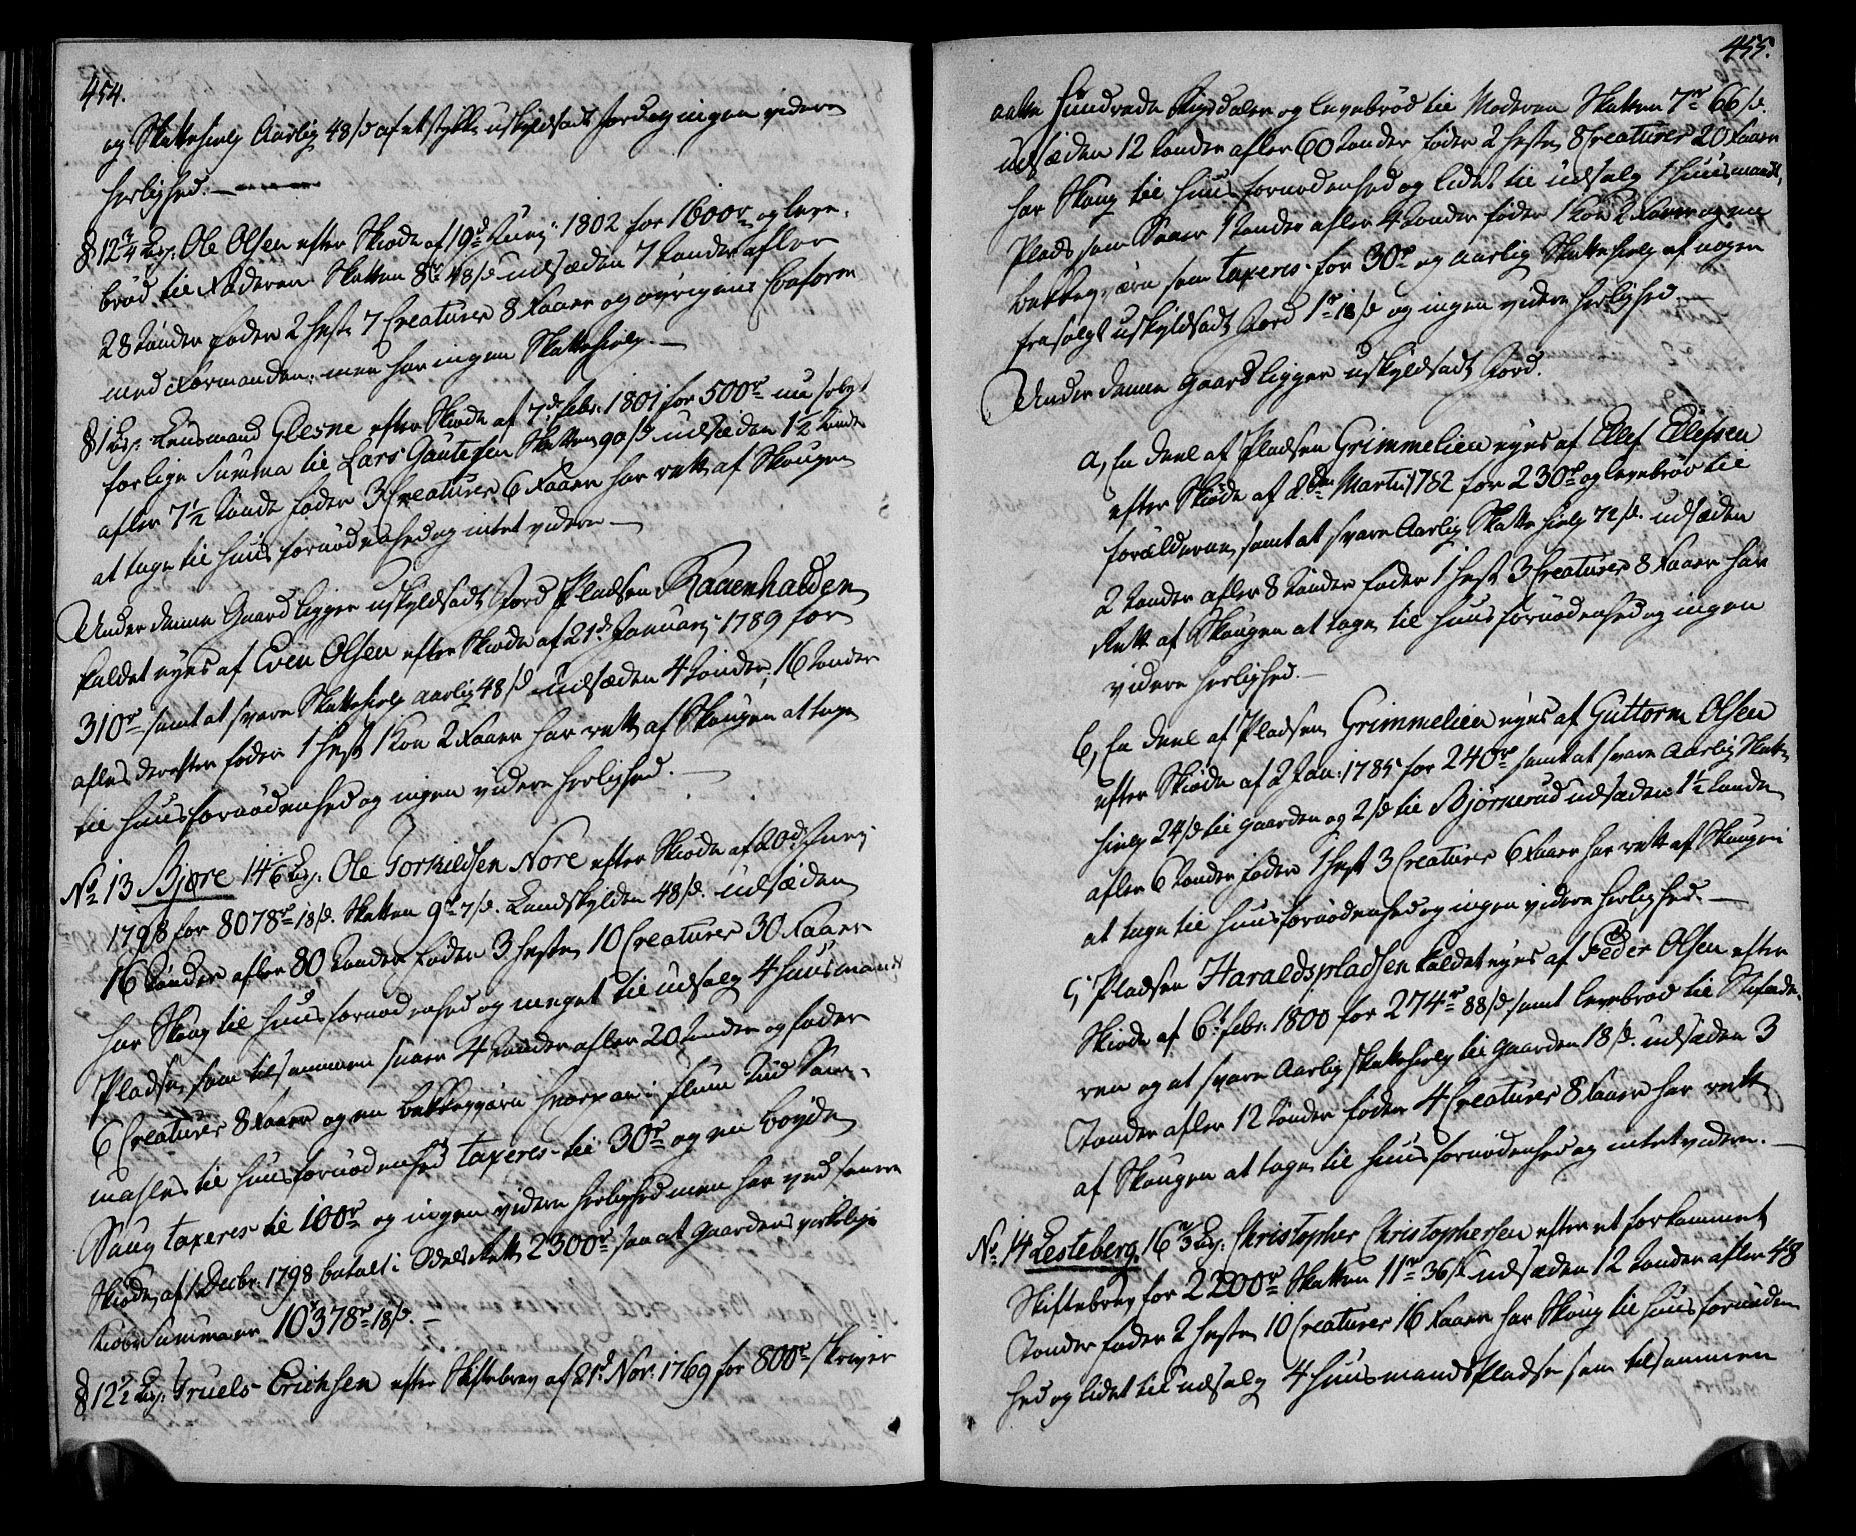 454.
og Skattehielp Aarlig 48 s af et støkke uskyldsadt Jord og ingen videre
herlighed. —
§ 12 3/4 Lp: Ole Olsen efter Skiøde af 19d Junj: 1802 for 1600r og leve-
brød til Faderen Skatten 8r 48 s udsæden 7 Tønder afler
28 Tønder føder 2 heste 7 Creaturer 8 Faarer og øvrigens Conform
med Formanden, men har ingen Skattehielp. —
§ 1 Lp: Lensmand Glesne efter Skiøde af 7de Febr: 1801 for 500r nu solgt
for lige Summa til Lars Gautesen Skatten 90 s udsæden 1 1/2 Tønde
afler 7 1/2 Tønde føder 3 Creaturer 6 Faarer har rett af Skougen
at tage til huusfornødenhed og intet videre —
Under denne Gaard ligger uskyldsadt Jord Pladsen Raaenhalden
kaldet eyes af Even Olsen efter Skiøde af 21d Januarj 1789 for
310r samt at svare Skattehielp aarlig 48 s udsæden 4 Tønder, 16 Tønder
afles derefter føder 1 hest 1 Koe 2 Faarer har rett af Skougen at tage
til huusfornødenhed og ingen videre herlighed. —
No 13 Bjøre 14 1/6 Lp: Ole Torkildsen Nore efter Skiøde af 20d Junj
1798 for 8078r 18 s. Skatten 9r 7 s. Landskylden 48 s. udsæden
16 Tønder afler 80 Tønder føder 3 heste 10 Creaturer 30 Faarer
har Skoug til huusfornødenhed og meget til udsalg 4 huusmands
Pladse som tilsammen saaer 4 Tønder afler 20 Tønder og føder
6 Creaturer 8 Faarer og en bekkeqværn hvorpaa i flom Tiid kan
mahles til huusfornødenhed taxeres til 30r og en bøyde
Saug taxeres til 100r og ingen videre herlighed men har ved senere
Skiøde af 1 Decbr: 1798 betalt i Odels Rett 2300r saa at Gaardens virkelige
Kiøbe Summa er 10378r 18 s. —
§ 12 1/2 Lp: Truels Erichsen efter Skiftebrev af 21d Nov: 1769 for 800r skriver
455.
aatte Hundrede Rigsdaler og levebrød til Moderen Skatten 7r 66 s.
udsæden 12 Tønder afler 60 Tønder føder 2 heste 8 Creaturer 20 Faarer
har Skoug til huusfornødenhed og lidet til udsalg 1 huusmands
Plads som saaer 1 Tønder afler 4 Tønder føder 1 Koe 2 Faarer og en
bekkeqværn som taxeres for 30r og aarlig Skattehielp af nogen
frasolgt uskyldsadt Jord 1r 18 s og ingen videre herlighed —
Under denne Gaard ligger uskyldsadt Jord.
a, En deel af Pladsen Grimmelien eyes af Ellef Ellefsen
efter Skiøde af 2den Martii 1782 for 230r og levebrød til
forældrene, samt at svare Aarlig Skattehielp 72 s. udsæden
2 Tønder afler 8 Tønder føder 1 hest 3 Creaturer 8 Faarer har
Rett af Skougen at tage til huusfornødenhed og ingen
videre herlighed. —
b, En deel af Pladsen Grimmelien eyes af Guttorm Olsen
efter Skiøde af 2 Jan: 1785 for 240r samt at svare Aarlig Skatte
hielp 24 s til gaarden og 2 s til Bjørnerud udsæden 1 1/2 Tønde
afler 6 Tønder føder 1 hest 3 Creaturer 6 Faarer har rett af Skougen
at tage til huusfornødenhed og ingen videre herlighed. —
c, Pladsen Haraldspladsen kaldet eyes af Peder Olsen efter
Skiøde af 6t Febr: 1800 for 274r 88 s. samt levebrød til Stifade-
ren og at svare Aarlig Skattehielp til gaarden 18 s. udsæden 3
Tønder afler 12 Tønder føder 4 Creaturer 8 Faarer har rett
af Skougen at tage til huusfornødenhed og intet videre. —
No 14 Lesteberg. 16 2/3 Lp: Christopher Christophersen efter et forkommet
Skiftebrev for 2200r Skatten 11r 36 s udsæden 12 Tønder afler 48
Tønder føder 2 heste 10 Creaturer 16 Faarer har Skoug til huusfornøden-
hed og lidet til udsalg 4 huusmandsPladse som tilsammen